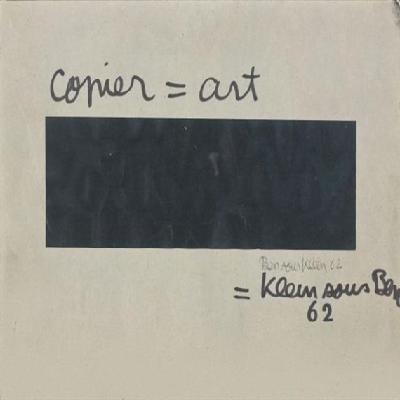 copier = art
Ben sous Klein 62
= Klein sous Ben
62